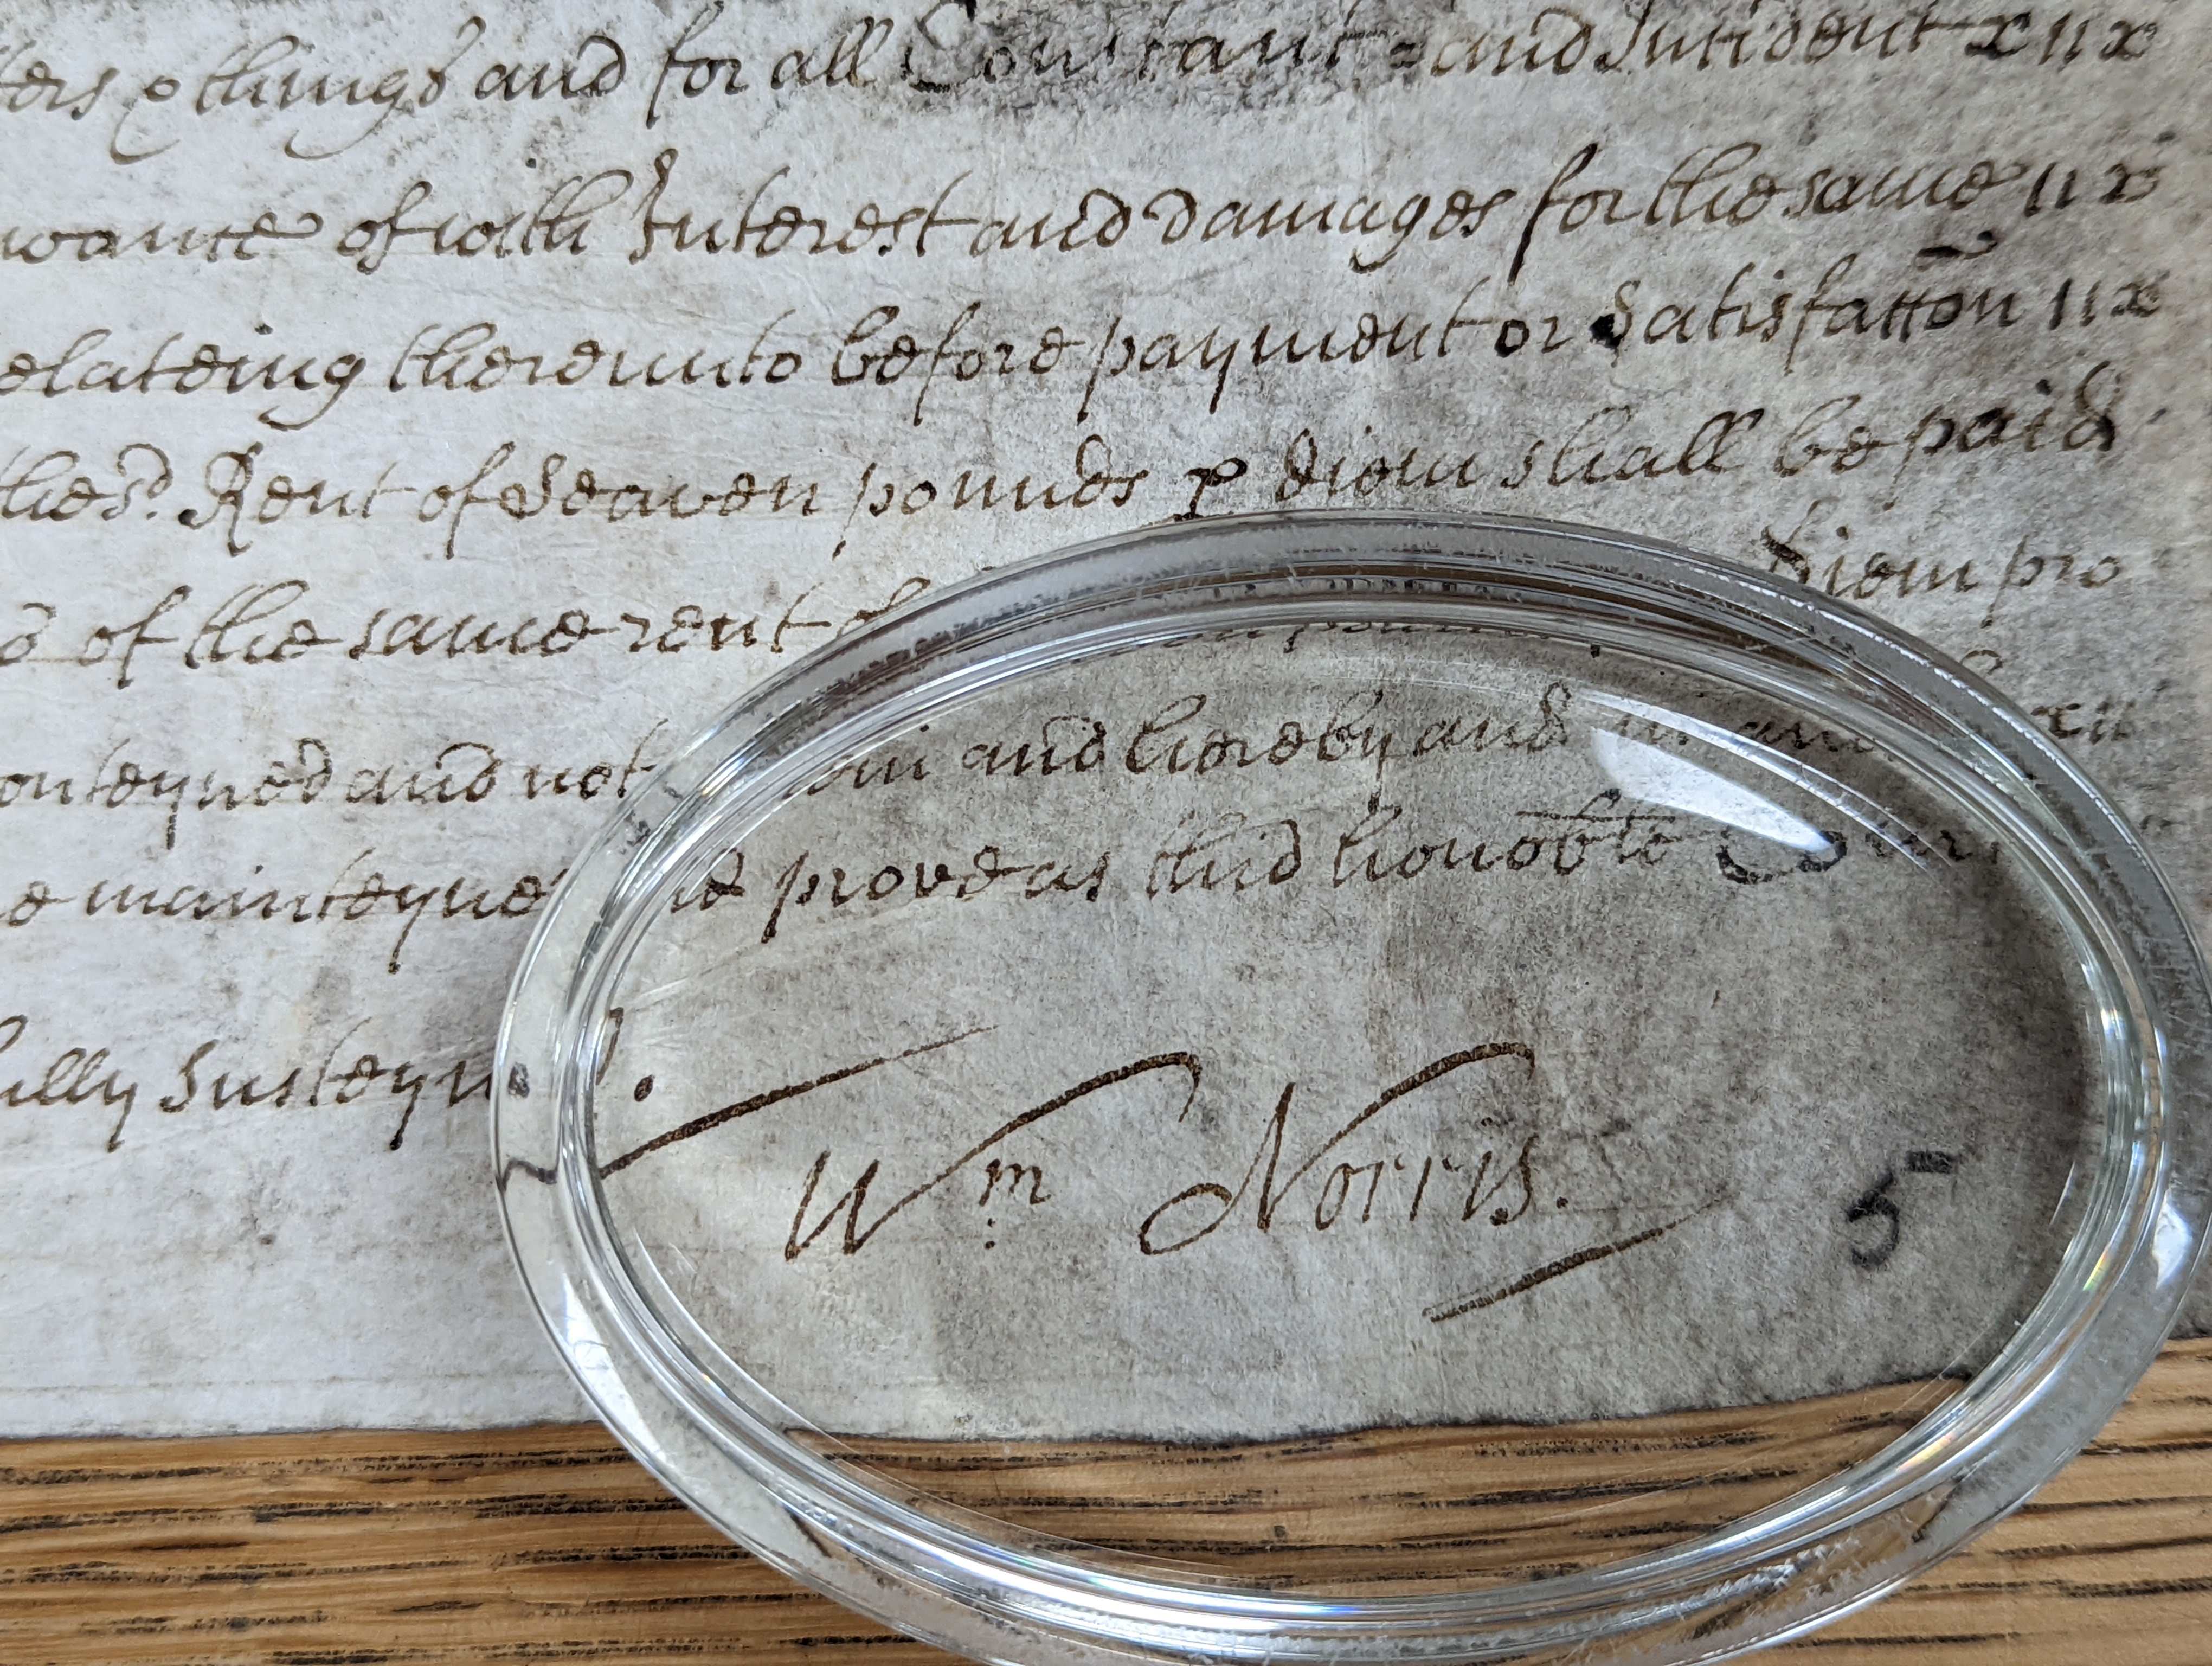 ters & things and for all Constant and Incident
of with Interest and damages for the same
elateing thereunto before payment or Satisfaccon
the sd. Rent of Seaven pounds p diem shall be paid
of the same rent diem pro
onteyned and not and hereby and
e mainteyne prove as this honoble Court
ully Susteyn
Wm Norris.
5